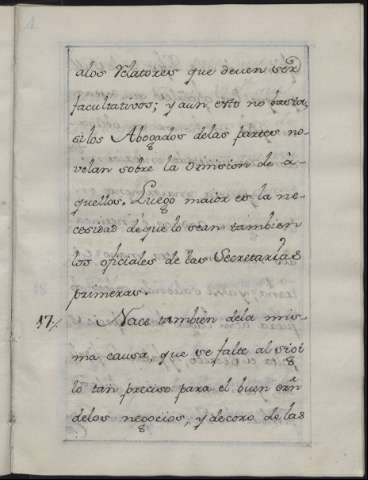 alos Relatores que deven ser
facultativos; y aun esto no basta,
si los Abogados delas partes no
velan sobre la omision de a-
quellos. Luego maior es la ne-
cesidad de que lo sean tambien
los oficiales de las Secretarías
primeras.
17. Nace tambien dela mis-
ma causa, que se falte al sigi
lo tan preciso para el buen orñ
delos negocios, y decoro de las